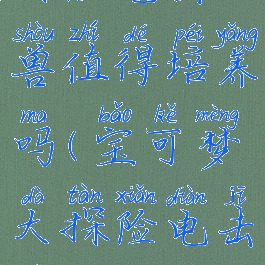 shòu zhí dé péi yǎng
兽值得培养
ma bǎo kě mèng
吗(宝可梦
dà tàn xiǎn diàn jī
大探险电击